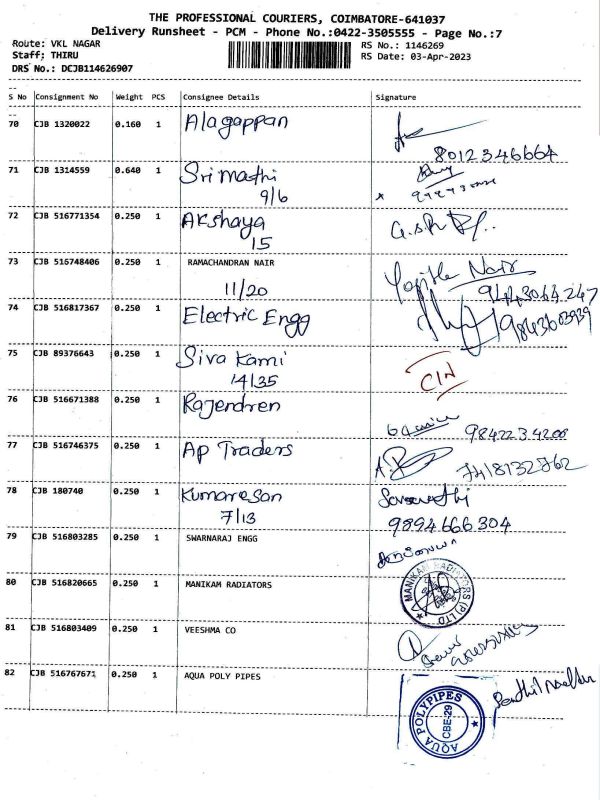 THE PROFESSIONAL COURIERS, COIMBATORE-641037
Delivery Runsheet - PCM - Phone No.:0422-3505555 - Page No.:7
Route: VKL NAGAR
RS No.: 1146269
Staff; THIRU
RS Date: 03-Apr-2023
DRS No.: DCJB114626907
S No Consignment No Weight PCS Consignee Details Signature
70 CJB 1320022 0.160 1 Alagappan
8012346664
71 CJB 1314559 0.640 1 Sri mathi
9/6
72 CJB 516771354 0.250 1 Akshaya
15
73 CJB 516748406 0.250 1 RAMACHANDRAN NAIR
Nair
11/20
9443064247
74 CJB 516817367 0.250 1 Electric Engg
9843603939
75 CJB 89376643 0.250 1 Siva kami
14/35
CIN
76 CJB 516671388 0.250 1 Rajendren
9842234200
77 CJB 516746375 0.250 1 Ap Traders
7418132762
78 CJB 180740 0.250 1 Kumareson
7/13
9894666304
79 CJB 516803285 0.250 1 SWARNARAJ ENGG
80 CJB 516820665 0.250 1 MANIKAM RADIATORS
MANIKAM RADIATORS (P) LTD
81 CJB 516803409 0.250 1 VEESHMA CO
82 CJB 516767671 0.250 1 AQUA POLY PIPES
AQUA POLYPIPES
CBE-29